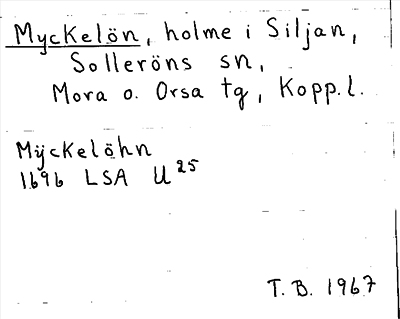 Myckelön, holme i Siljan,
Solleröns sn,
Mora o. Orsa tg, Kopp.l.
Mÿckelöhn
1696 LSA U25
T.B. 1967